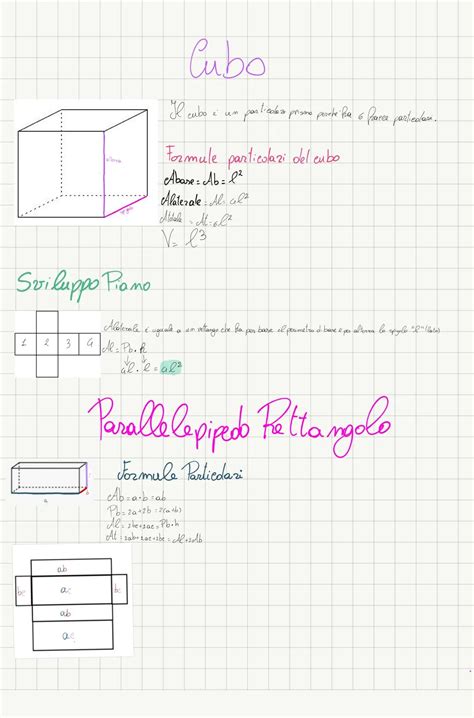 Cubo
Il cubo è un particolare prisma perché ha 6 facce particolari.
Formule particolari del cubo
Abase = Ab = l²
Alaterale = Al = 4l²
At = 6l²
V = l³
Sviluppo Piano
Alaterale è uguale a un rettangolo che ha per base il perimetro di base e per altezza lo spigolo "l"
1 2 3 4
Al = Pb · h
4l · l = 4l²
Parallelepipedo Rettangolo
Formule Particolari
a b
Ab = a·b = ab
Pb = 2a+2b = 2(a+b)
Al = 2bc+2ac = Pb·h
At = 2ab+2ac+2bc = Al+2Ab
ab
bc ac bc
ab
ac